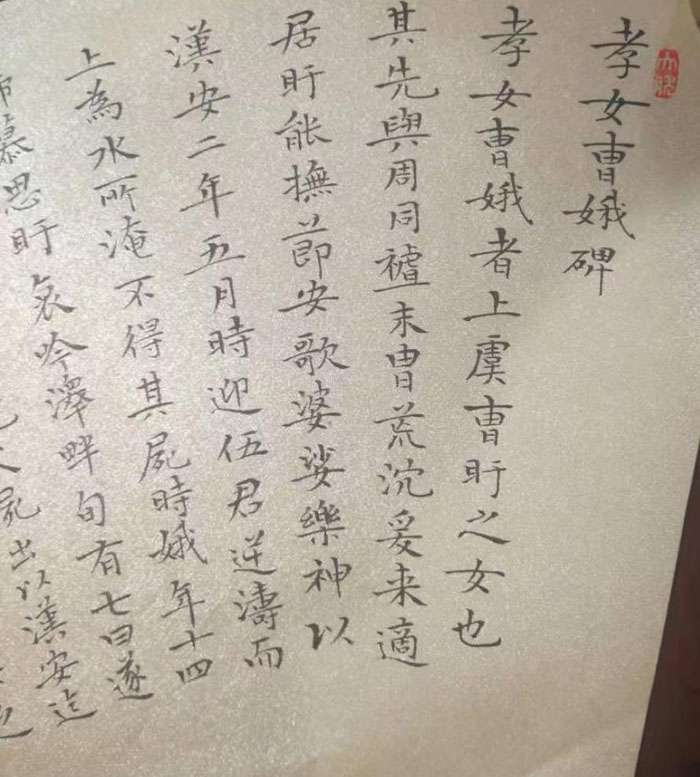 孝女曹娥碑
孝女曹娥者上虞曹盱之女也
其先與周同禭末曹荒沉爰来適
居盱能撫節安歌婆娑樂神以
漢安二年五月時迎伍君逆濤而
上為水所淹不得其屍時娥年十四
慕思盱哀吟澤畔旬有七日遂
屍出以漢安迄